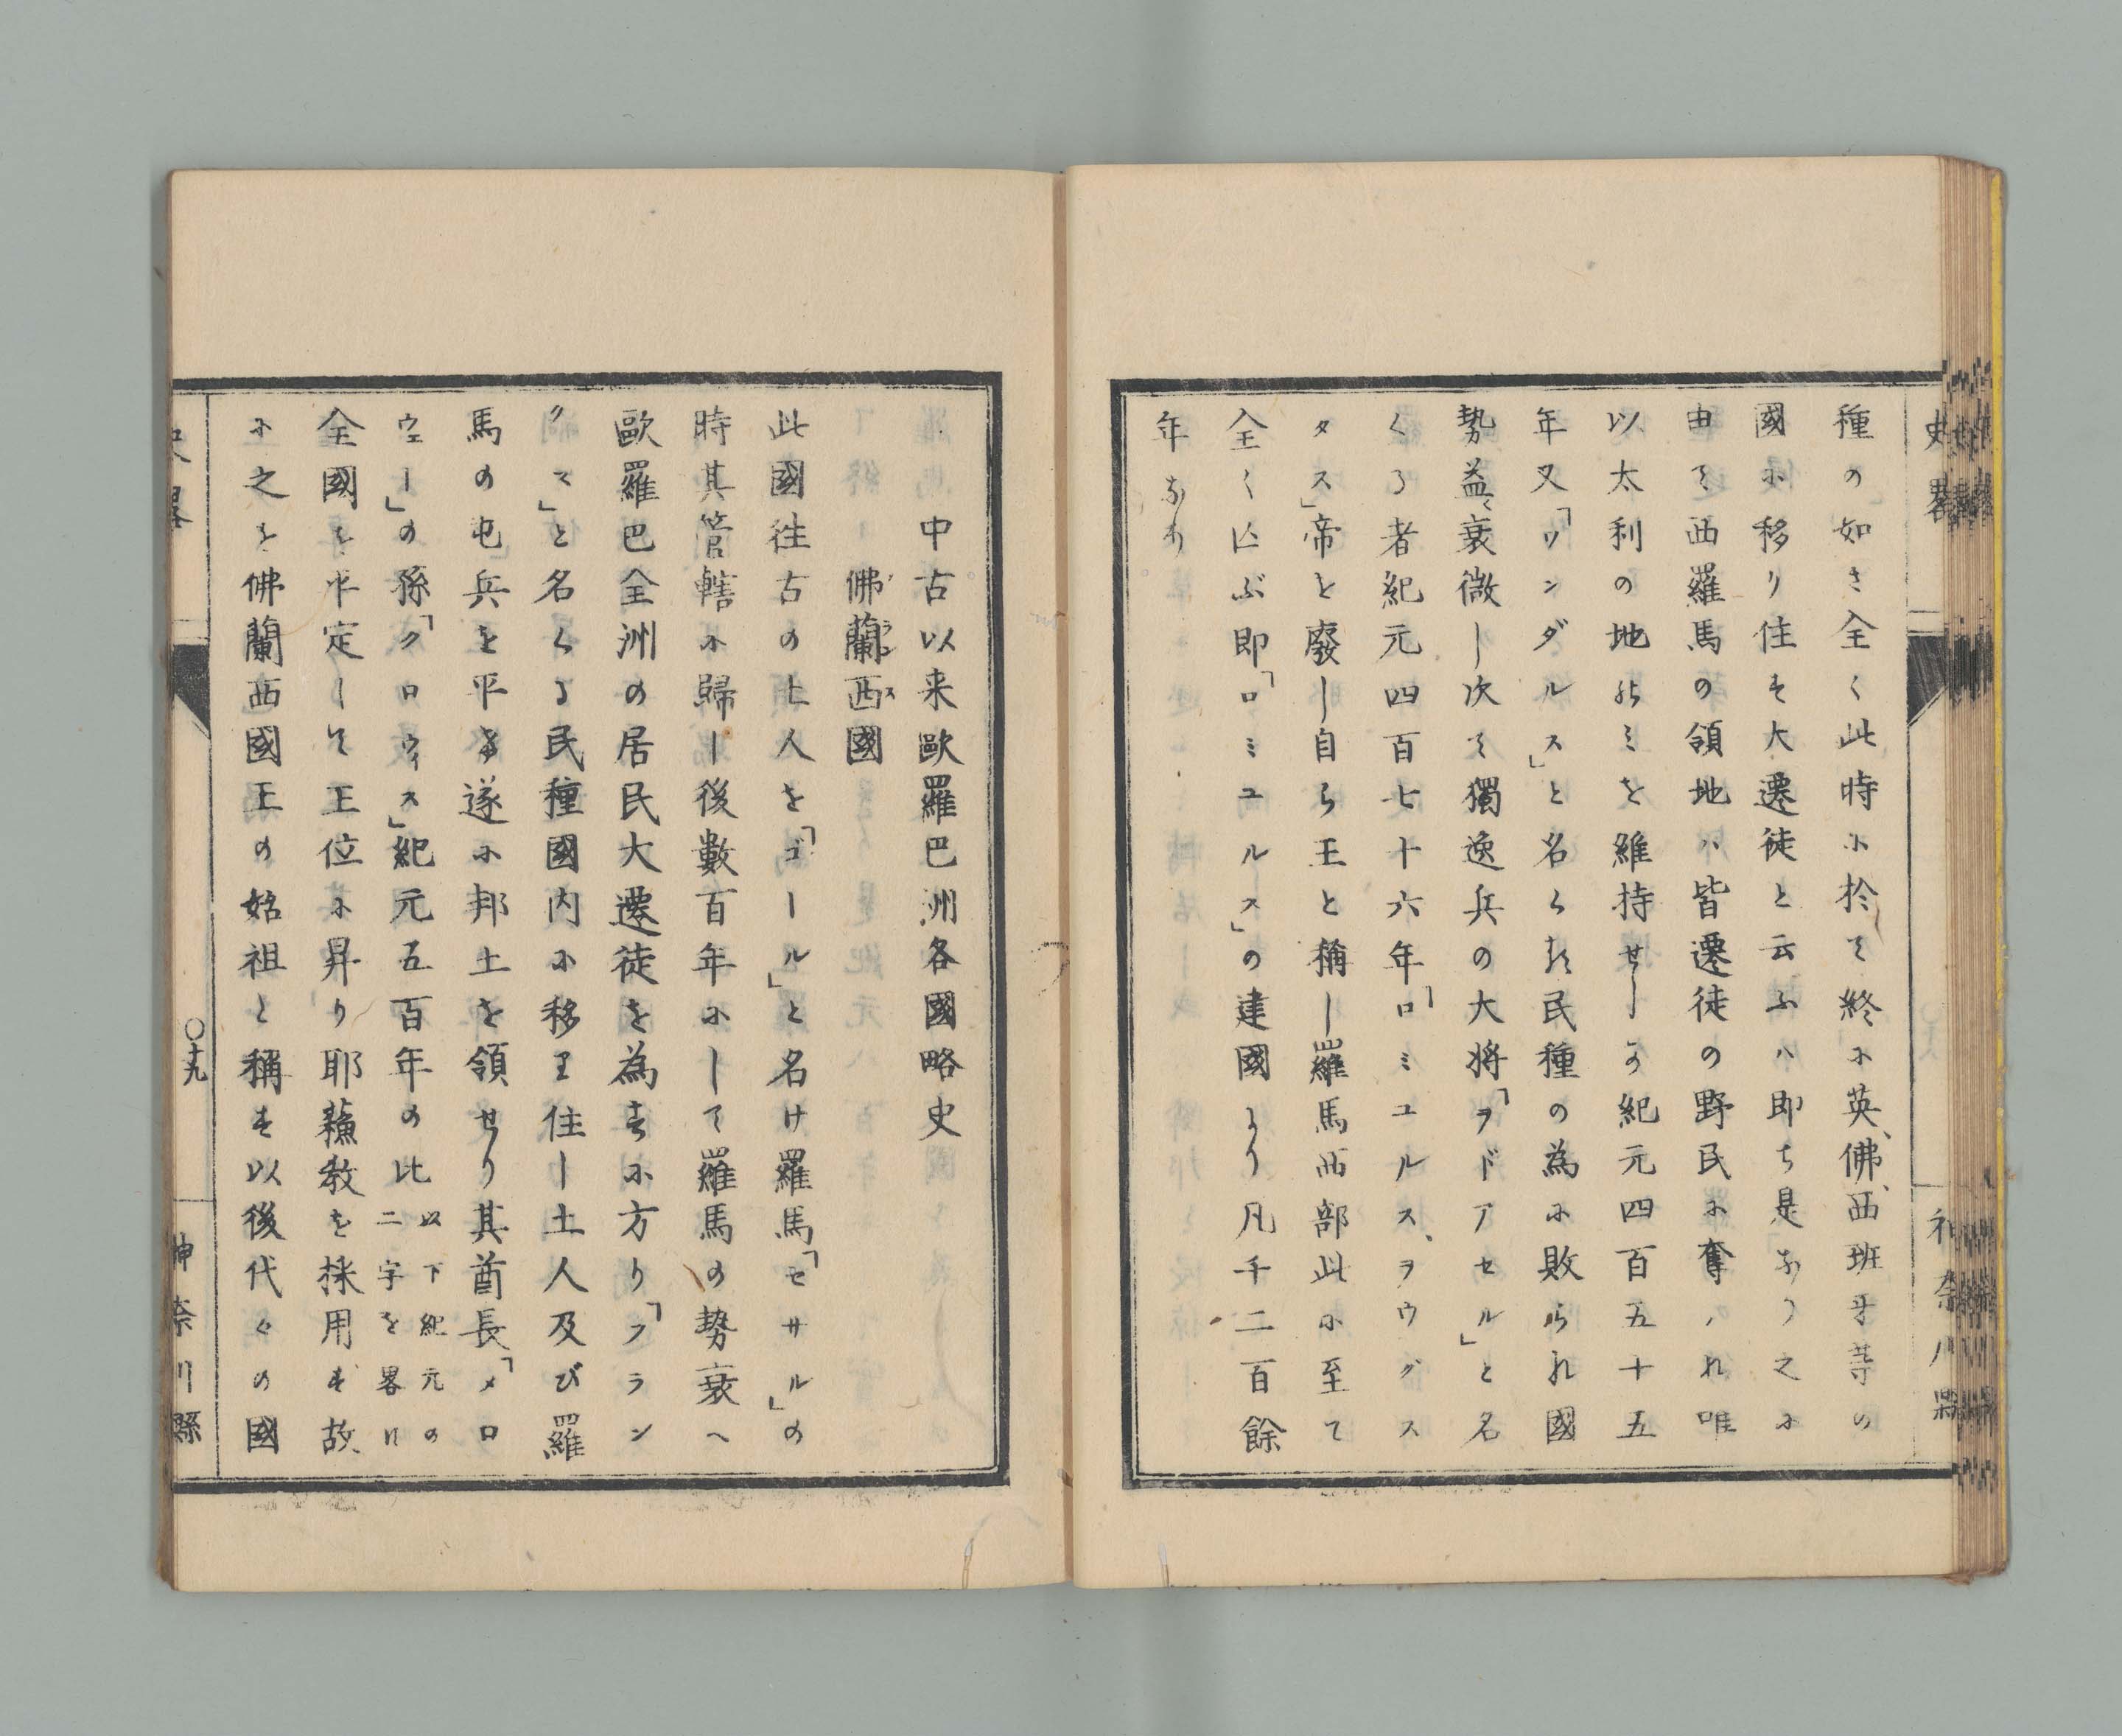 史畧
神奈川縣
種の如き全く此時に於て終に英、佛、西班牙等の
國に移り住す大遷徒と云ふハ即ち是なり之に
由て西羅馬の領地ハ皆遷徒の野民に奪ハれ唯
以太利の地のミを維持せしが紀元四百五十五
年又「ワンダルス」と名くる民種の為に敗られ國
勢益〻衰微し次て獨逸兵の大将「ヲドアセル」と名
くる者紀元四百七十六年「ロミユルス、ヲウグス
タス」帝を廢し自ら王と稱し羅馬西部此に至て
全く亡ぶ即「ロミユルス」の建國より凡千二百餘
年なり
中古以来歐羅巴洲各國略史
佛蘭西國
フランス
此國往古の土人を「ゴール」と名け羅馬「セサル」の
時其管轄に歸し後數百年にして羅馬の勢衰へ
歐羅巴全洲の居民大遷徒を為すに方り「フラン
クス」と名くる民種國内に移り住し土人及び羅
馬の屯兵を平げ遂に邦土を領せり其酋長「メロ
ウェー」の孫「クロウィス」紀元五百年の比以下紀元の二字を畧ス
全國を平定して王位に昇り耶蘓教を採用す故
に之を佛蘭西國王の始祖と稱す以後代々の國
史畧
〇十九
神奈川縣